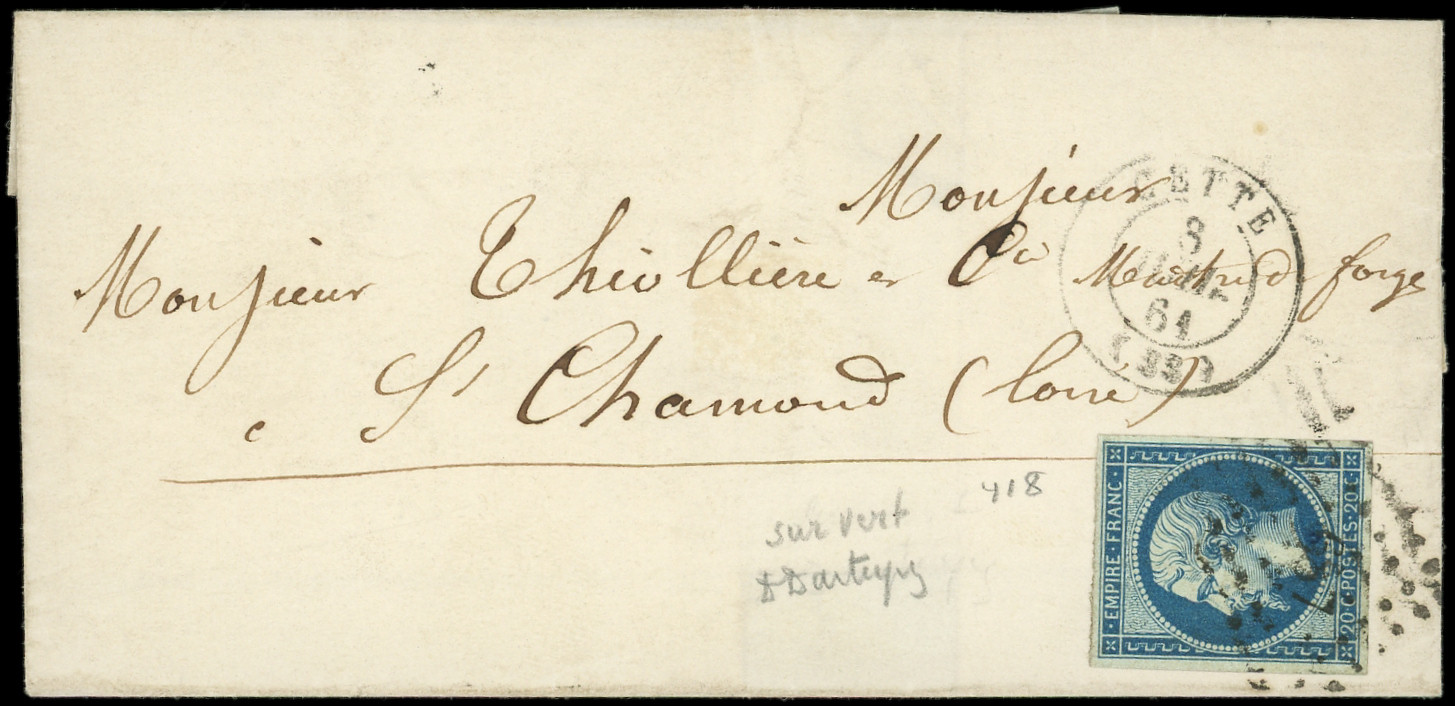 Monsieur
Monsieur Thiollière et Cie Maitre de forge
à St Chamond (Loire)
CETTE
8
JUIL
61
(33)
418
sur vert
EMPIRE · FRANC ·
20 C · POSTES · 20 C ·